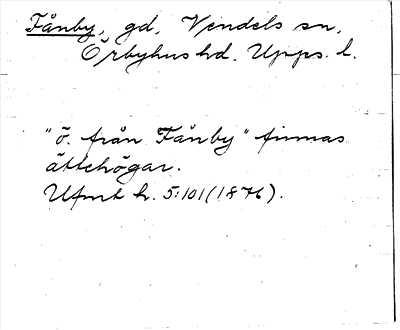 Fånby, gd, Vendels sn,
Örbyhus hd. Upps. l.
"ö. från Fånby" finnas
ättehögar.
Ufmt h. 5:101 (1876).